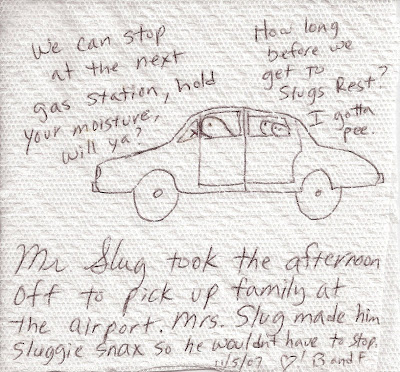 We can stop
at the next
gas station, hold
your moisture,
will ya?
How long
before we
get to
Slugs Rest?
I gotta
pee
Mr Slug took the afternoon
off to pick up family at
the airport. Mrs. Slug made him
sluggie snax so he wouldn't have to stop.
11/5/07 ♡! B and F